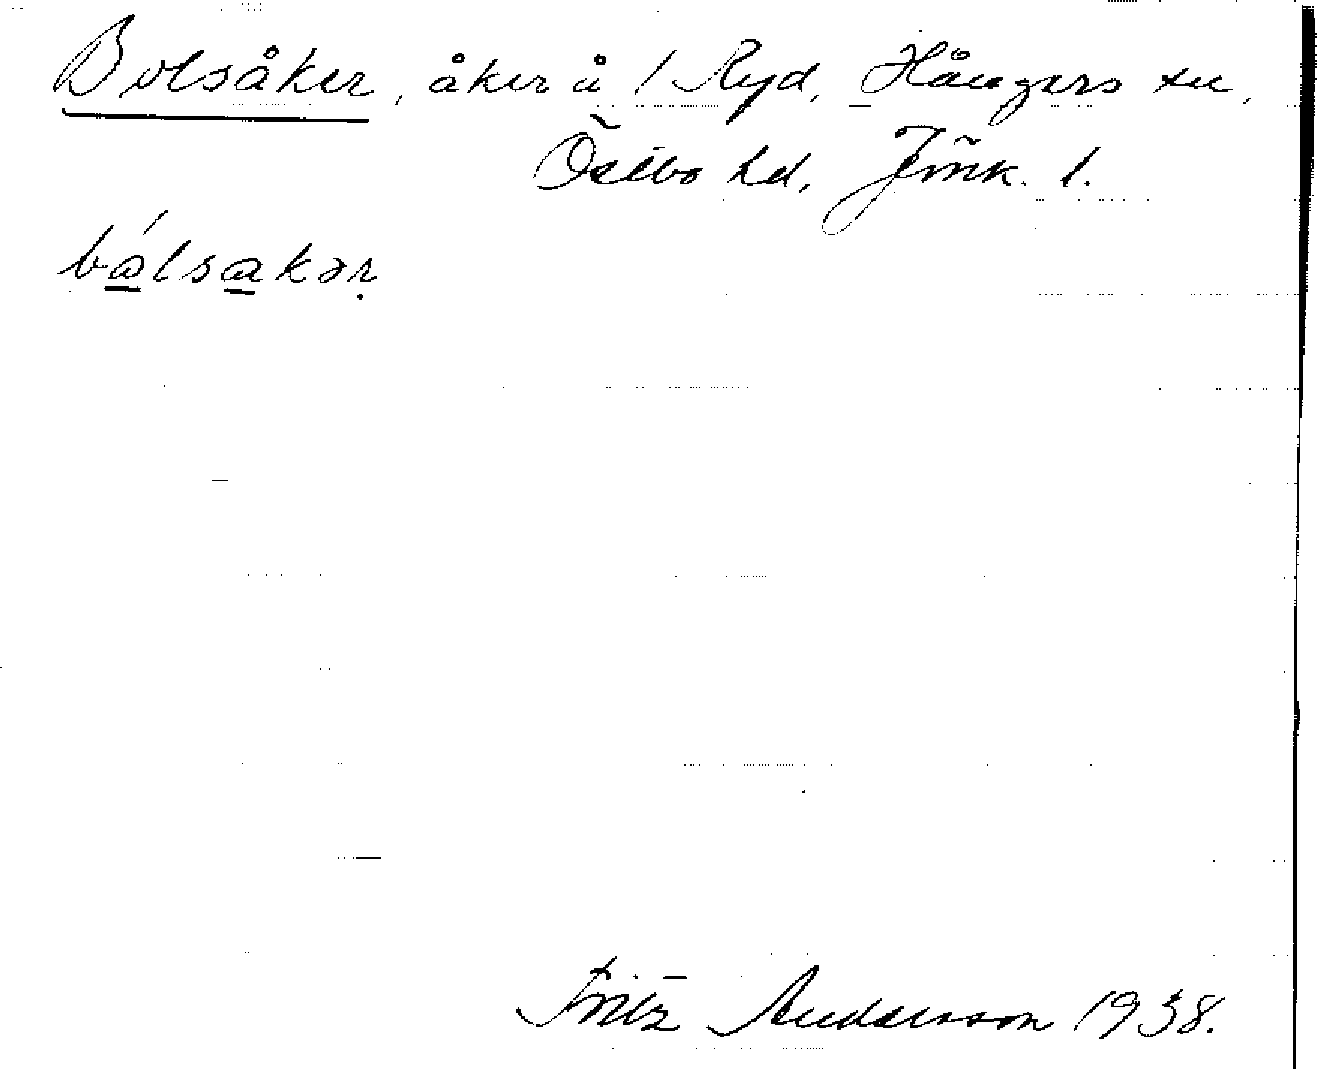 Bolsåker, åker å 1 Ryd, Hångers sn,
Östbo hd, Jönk. l.
bólsakər
Fritz Andersson 1938.